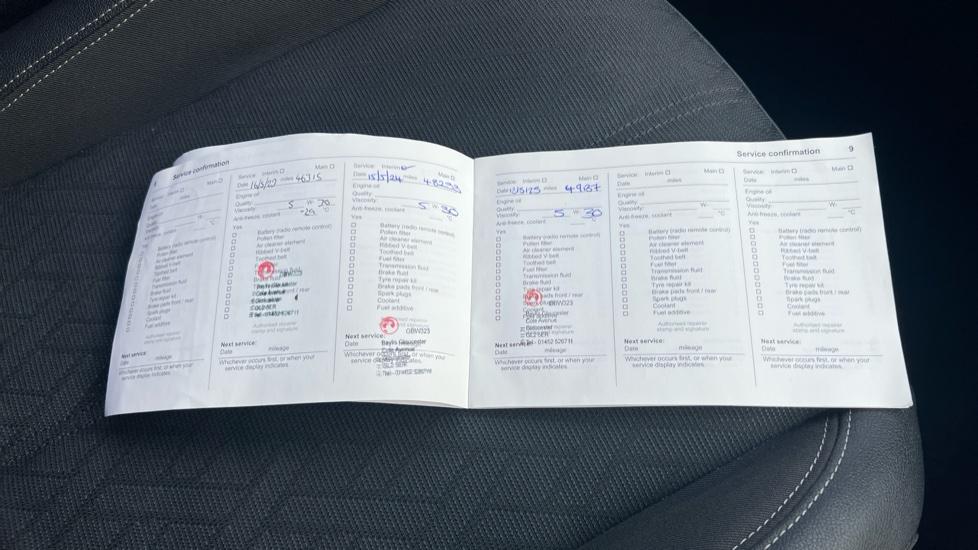 Service confirmation
Main
Date
miles
Engine oil
Battery (radio remote control)
Pollen filter
Air cleaner element
Ribbed V-belt
Toothed belt
Fuel filter
Transmission fluid
Brake fluid
Tyre repair kit
Spark plugs
Coolant
Fuel additive
Authorised repairer
stamp and signature
Next service:
Date mileage
Whichever occurs first, or when your
service display indicates.
Service: Interim Main
miles 46315
Engine oil
Quality:
Viscosity:
Anti-freeze, coolant -29 °C
Yes
Battery (radio remote control)
Pollen filter
Air cleaner element
Ribbed V-belt
Toothed belt
Spark plugs
Coolant
Fuel additive
Authorised repairer
stamp and signature
Next service:
Date mileage
Whichever occurs first, or when your
service display indicates.
Service: Interim Main
Date 15/5/24 miles 48293
Engine oil
Quality:
Viscosity: 5 W- 30
Anti-freeze, coolant °C
Yes
Battery (radio remote control)
Pollen filter
Air cleaner element
Ribbed V-belt
Toothed belt
Fuel filter
Transmission fluid
Brake fluid
Tyre repair kit
Brake pads front / rear
Spark plugs
Coolant
Fuel additive
GBW023
Next service:
Date
Baylis Gloucester
Cole Avenue
GL2 5ER
Service confirmation 9
Service: Interim Main
miles
Engine oil
Quality:
Viscosity: 5 W- 30
Anti-freeze, coolant °C
Yes
Battery (radio remote control)
Pollen filter
Air cleaner element
Ribbed V-belt
Toothed belt
Fuel filter
Transmission fluid
Brake fluid
GBW023
Cole Avenue
Gloucester
GL2 5ER
Tel - 01452 526711
Next service:
Date mileage
Whichever occurs first, or when your
service display indicates.
Service: Interim Main
Date miles
Engine oil
Quality:
Viscosity: W-
Anti-freeze, coolant °C
Yes
Battery (radio remote control)
Pollen filter
Air cleaner element
Ribbed V-belt
Toothed belt
Fuel filter
Transmission fluid
Brake fluid
Tyre repair kit
Brake pads front / rear
Spark plugs
Coolant
Fuel additive
Authorised repairer
stamp and signature
Next service:
Date mileage
Whichever occurs first, or when your
service display indicates.
Service: Interim Main
Date miles
Engine oil
Quality:
Viscosity: W-
Anti-freeze, coolant °C
Yes
Battery (radio remote control)
Pollen filter
Air cleaner element
Ribbed V-belt
Toothed belt
Fuel filter
Transmission fluid
Brake fluid
Tyre repair kit
Brake pads front / rear
Spark plugs
Coolant
Fuel additive
Authorised repairer
stamp and signature
Next service:
Date mileage
Whichever occurs first, or when your
service display indicates.